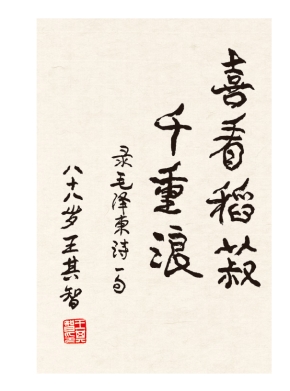 喜看稻菽
千重浪
录毛泽东诗一句
八十八岁王其智